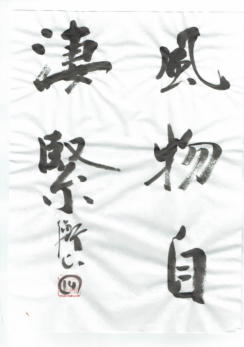 風物自
淒緊